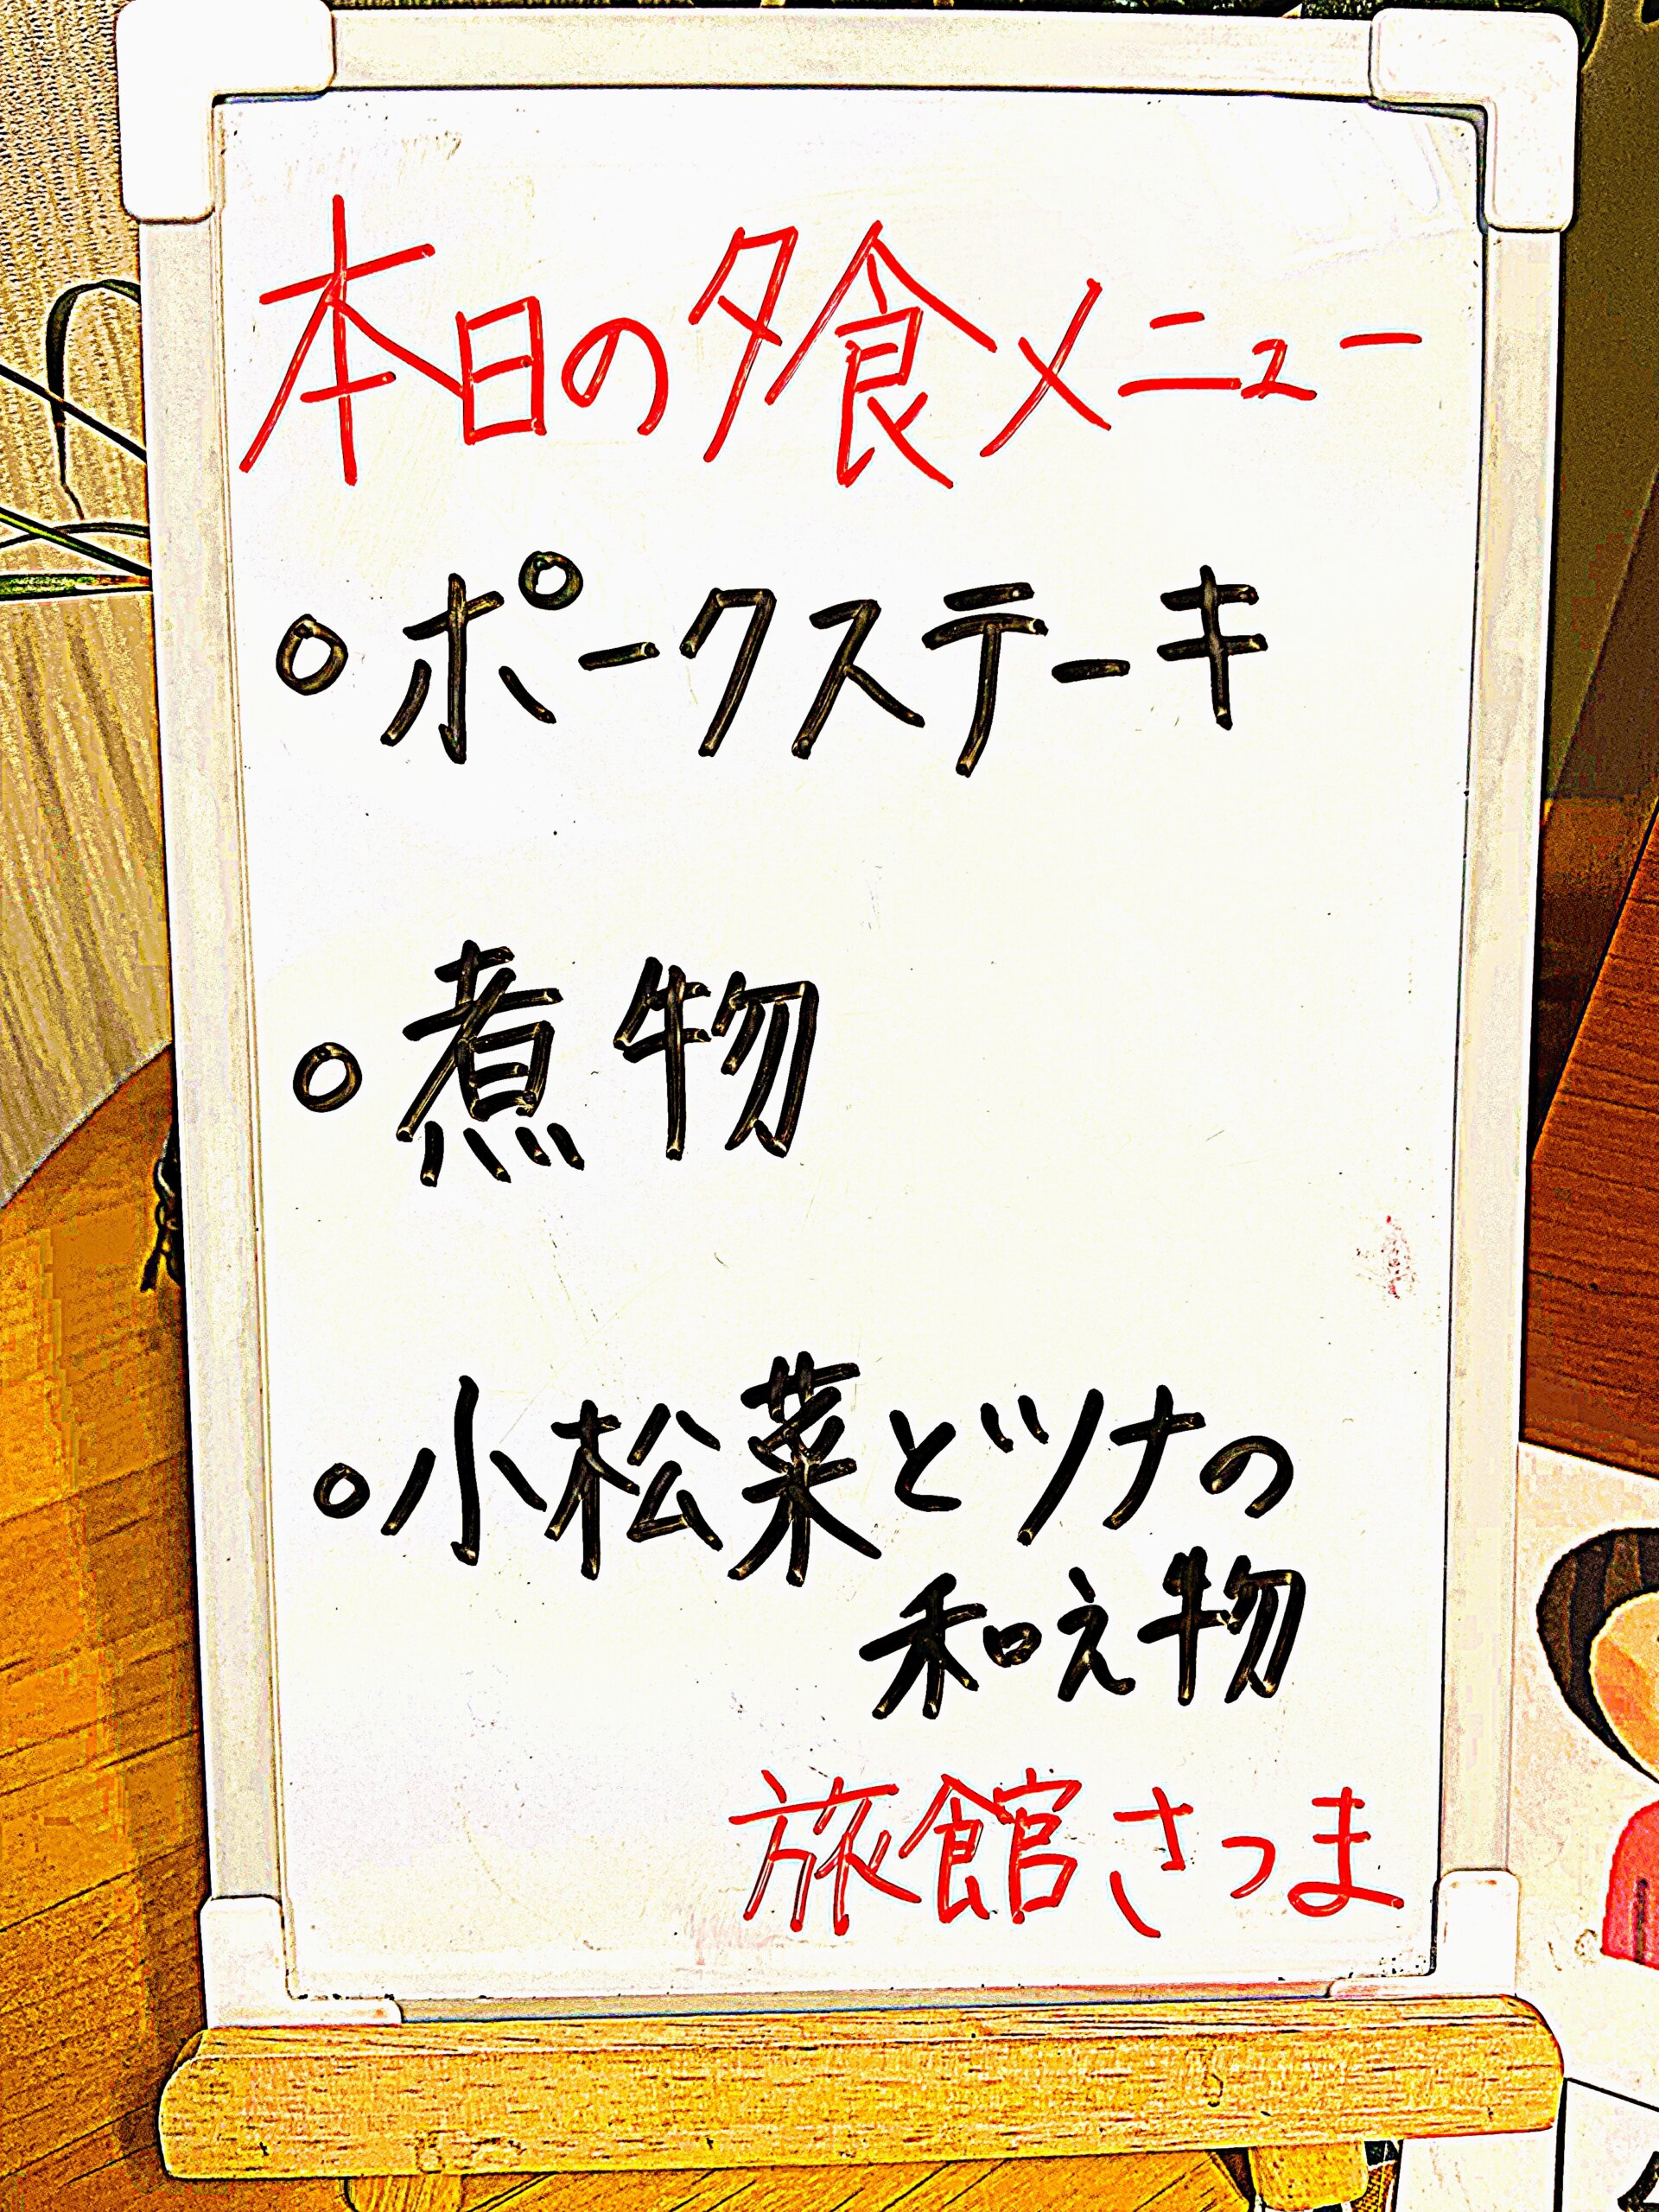 本日の夕食メニュー
○ポークステーキ
○煮物
○小松菜とツナの
和え物
旅館さつま